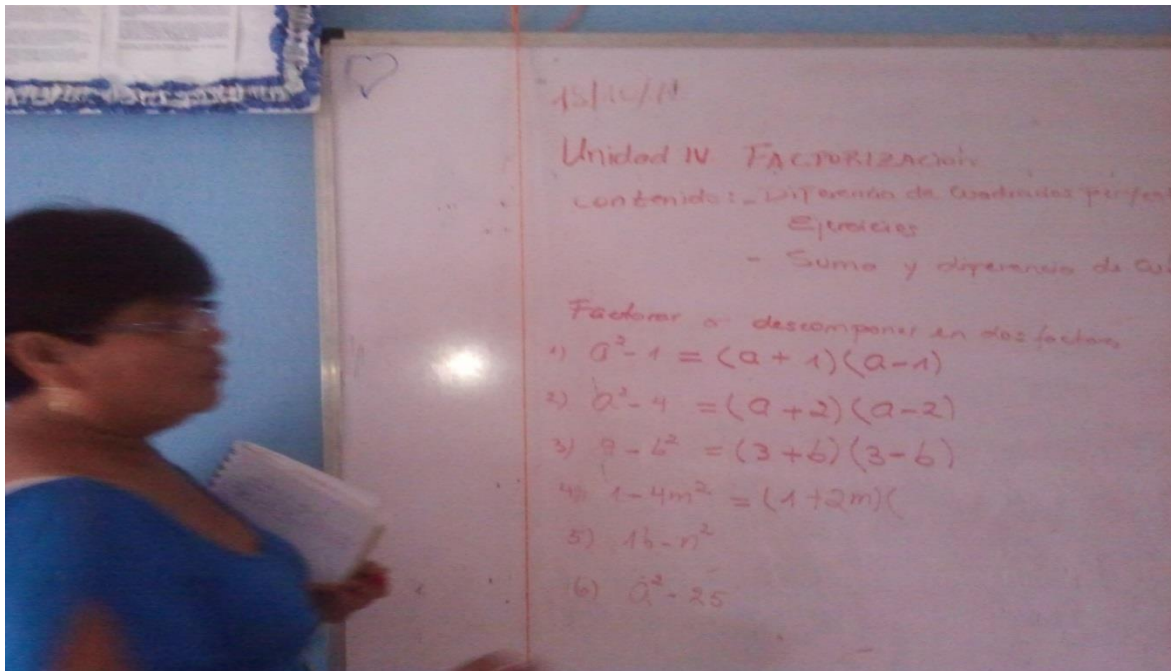 Unidad IV FACTORIZACIÓN
contenido: - Diferencia de Cuadrados
Ejercicios
- Suma y diferencia de
Factorar o descomponer en dos factores
1) a² - 1 = (a + 1)(a - 1)
2) a² - 4 = (a + 2)(a - 2)
3) 9 - b² = (3 + b)(3 - b)
4) 1 - 4m² = (1 + 2m)(
5) 16 - n²
6) a² - 25